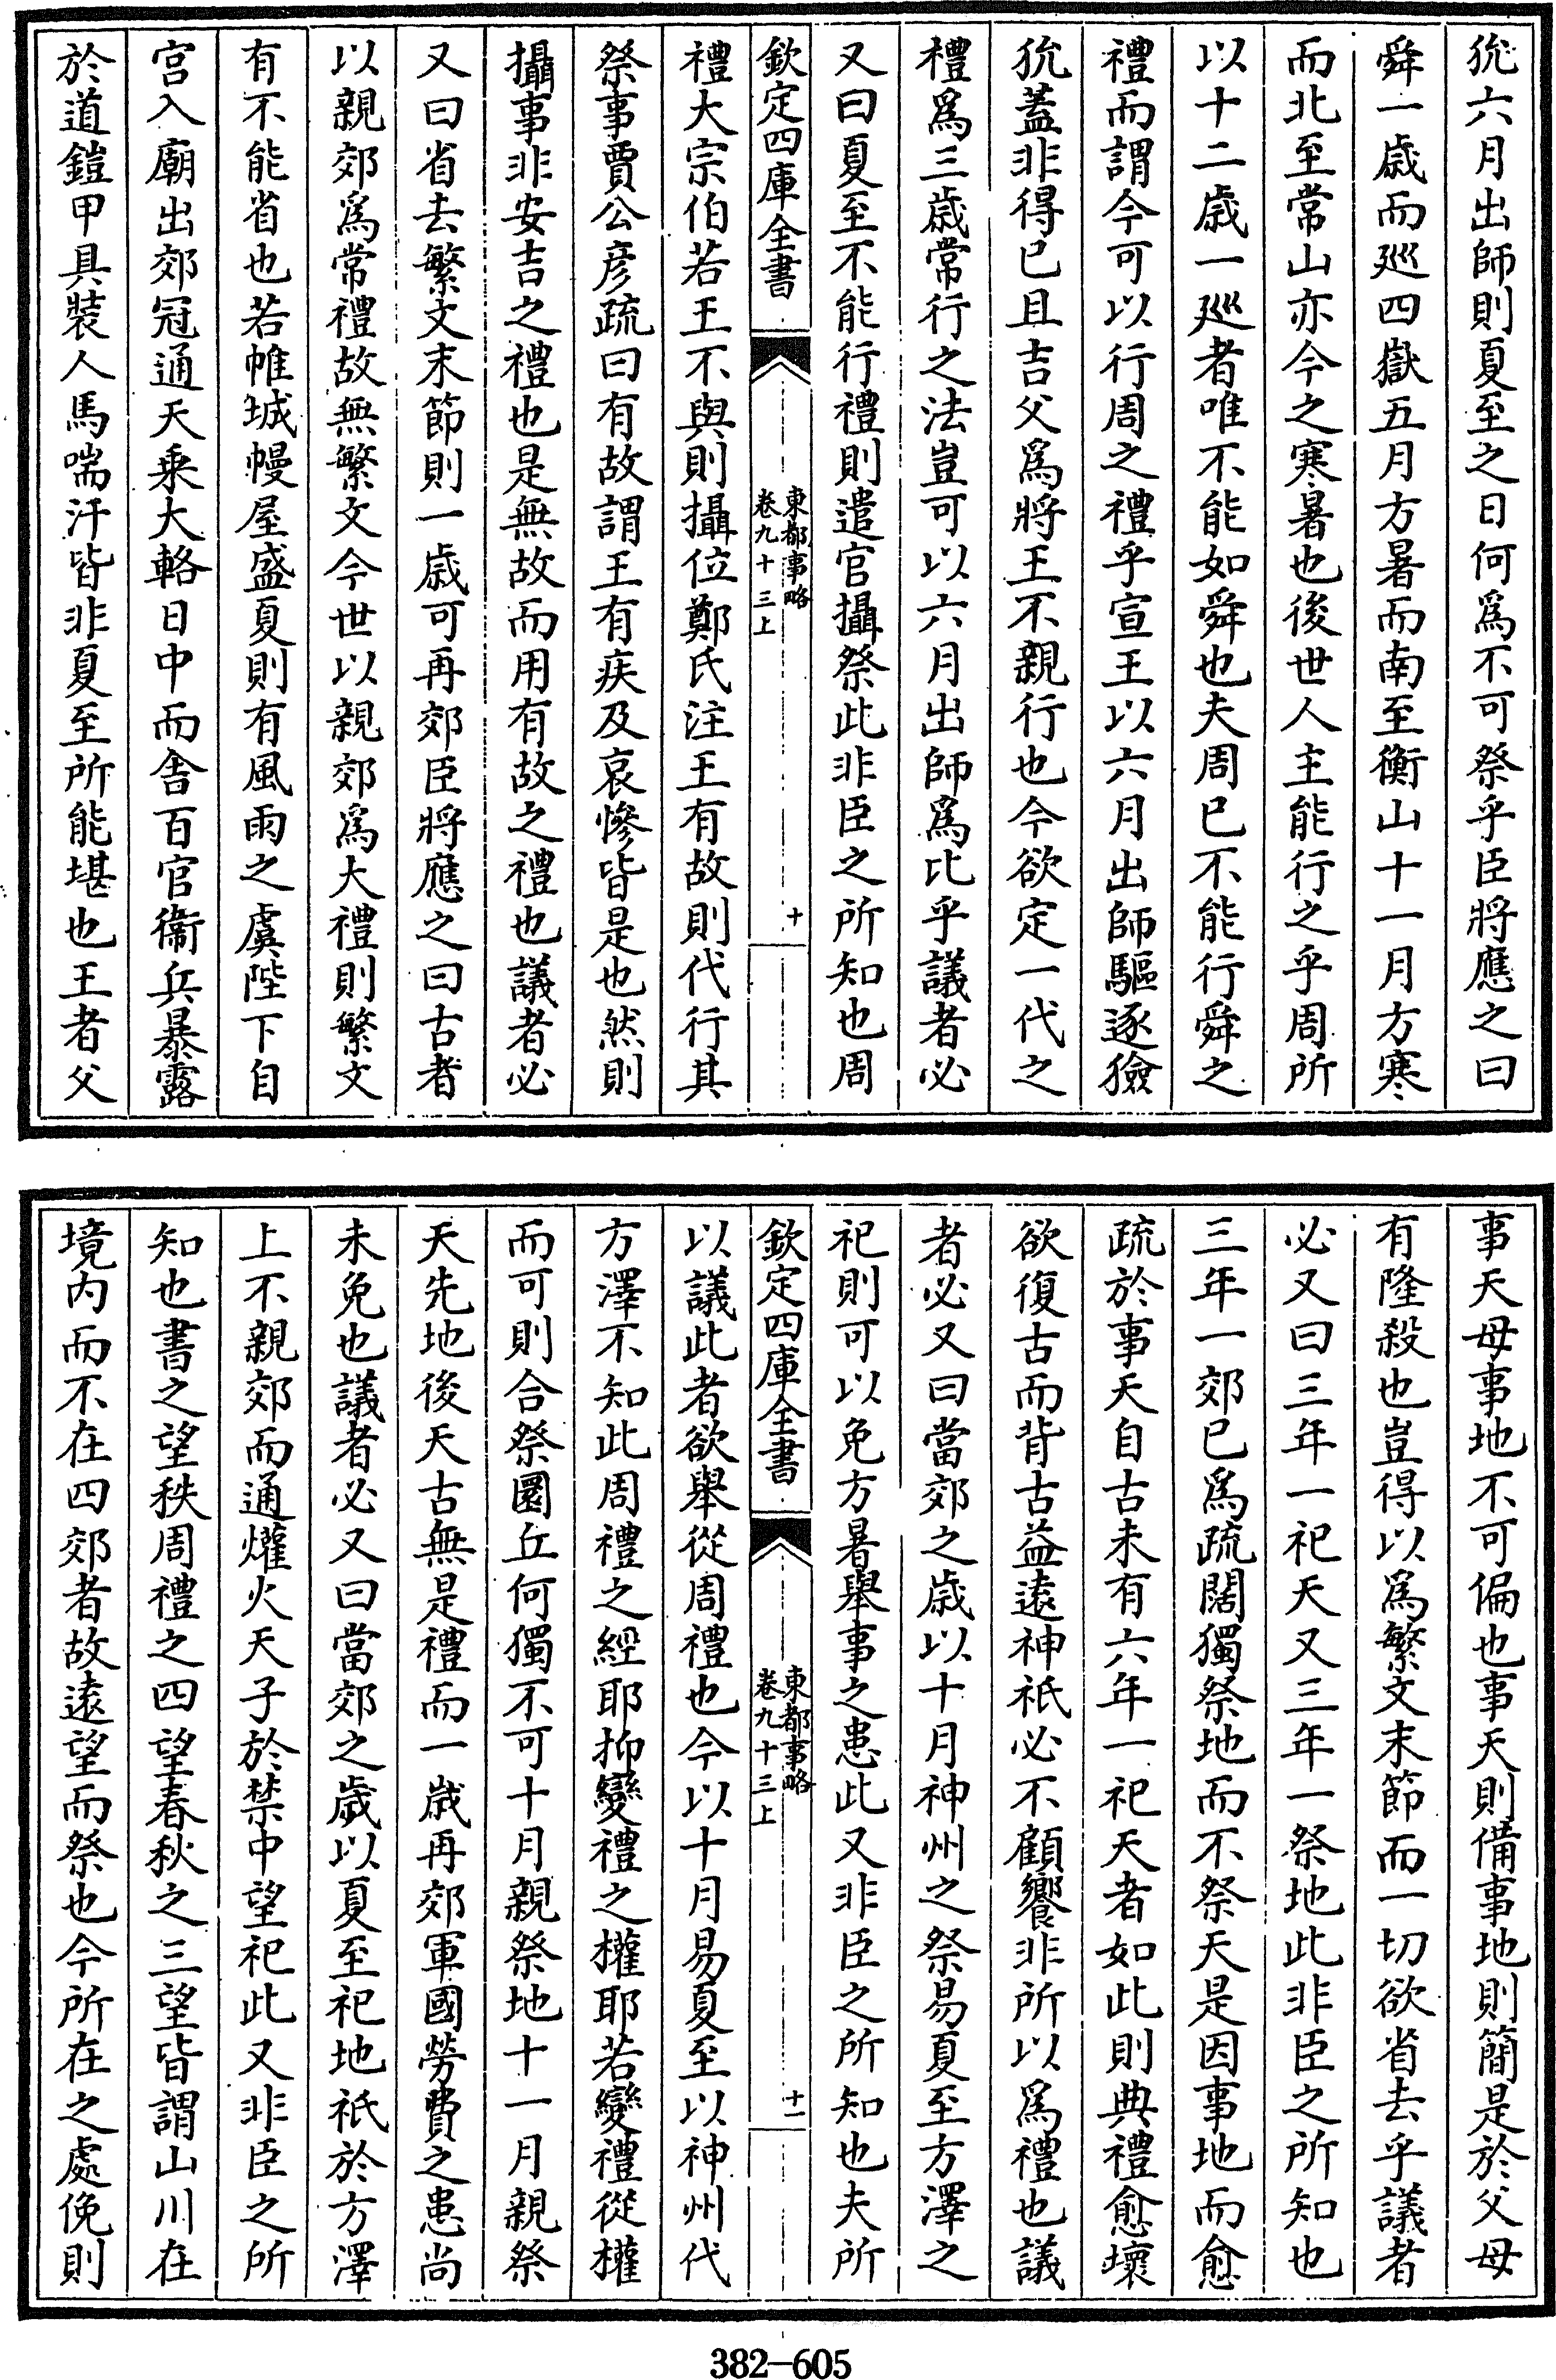 狁六月出師則夏至之日何爲不可祭乎臣將應之曰
舜一歲而廵四嶽五月方暑而南至衡山十一月方寒
而北至常山亦今之寒暑也後世人主能行之乎周所
以十二歲一廵者唯不能如舜也夫周已不能行舜之
禮而謂今可以行周之禮乎宣王以六月出師驅逐獫
狁蓋非得已且吉父爲將王不親行也今欲定一代之
禮爲三歲常行之法豈可以六月出師爲比乎議者必
又曰夏至不能行禮則遣官攝祭此非臣之所知也周
欽定四庫全書
東都事略
卷九十三上
十
禮大宗伯若王不與則攝位鄭氏注王有故則代行其
祭事賈公彦疏曰有故謂王有疾及哀慘皆是也然則
攝事非安吉之禮也是無故而用有故之禮也議者必
又曰省去繁文末節則一歲可再郊臣將應之曰古者
以親郊爲常禮故無繁文今世以親郊爲大禮則繁文
有不能省也若帷城幔屋盛夏則有風雨之虞陛下自
宮入廟出郊冠通天乘大輅日中而舍百官衞兵暴露
於道鎧甲具裝人馬喘汗皆非夏至所能堪也王者父
事天母事地不可偏也事天則備事地則簡是於父母
有隆殺也豈得以爲繁文末節而一切欲省去乎議者
必又曰三年一祀天又三年一祭地此非臣之所知也
三年一郊已爲疏闊獨祭地而不祭天是因事地而愈
疏於事天自古未有六年一祀天者如此則典禮愈壞
欲復古而背古益遠神祇必不顧饗非所以爲禮也議
者必又曰當郊之歲以十月神州之祭易夏至方澤之
祀則可以免方暑舉事之患此又非臣之所知也夫所
欽定四庫全書
東都事略
卷九十三上
十一
以議此者欲舉從周禮也今以十月易夏至以神州代
方澤不知此周禮之經耶抑變禮之權耶若變禮從權
而可則合祭圜丘何獨不可十月親祭地十一月親祭
天先地後天古無是禮而一歲再郊軍國勞費之患尚
未免也議者必又曰當郊之歲以夏至祀地祇於方澤
上不親郊而通爟火天子於禁中望祀此又非臣之所
知也書之望秩周禮之四望春秋之三望皆謂山川在
境内而不在四郊者故遠望而祭也今所在之處俛則
382-605